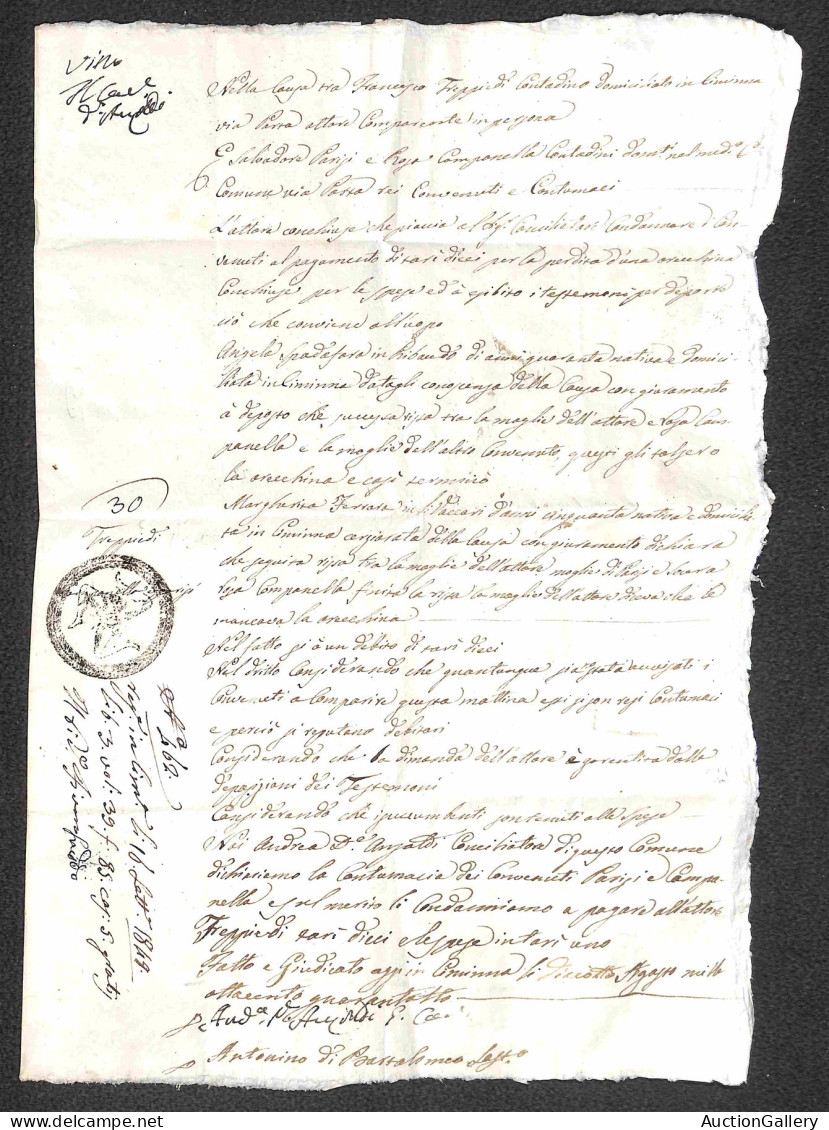 Visto
Nella Causa tra Francesco Treppiedi Contadino domiciliato in Ciminna
via Parra attore Comparente in persona
E Salvadore Parisi e Rosa Campanella Contadini domti nel medo
Comune via Parra rei Convenuti e Contumaci
L'attore conchiuse che piaccia al Sigr Conciliatore Condannare i Con-
venuti al pagamento di tarì dieci per la perdita d'una orecchina
Conchiuse per le spese ed à esibito i testemoni per deporre
ciò che conviene all'uopo
Angela Spadafora in Ribaudo di anni quaranta nativa e domici-
liata in Ciminna datagli conoscenza della Causa con giuramento
à deposto che successa rissa tra la moglie dell'attore e Rosa Cam-
panella e la moglie dell'altro Convenuto, questi gli tolsero
la orecchina e così terminò
Margherita Ferrara in d'anni cinquanta nativa e domicilia-
ta in Ciminna della Causa con giuramento dichiara
che seguita rissa tra la moglie dell'attore moglie di Parisi e
Rosa Campanella finita la rissa la moglie dell'attore diceva che le
mancava la orecchina
Nel fatto si à un debito di tarì dieci
Nel dritto Considerando che quantunque stati avvisati i
Convenuti a Comparire questa mattina essi si son resi Contumaci
e perciò si reputano debitori
Considerando che la dimanda dell'attore è garentita dalle
deposizioni dei Testemoni
Considerando che i succumbenti son tenuti alle spese
Noi Andrea Do Conciliatore di questo Comune
dichiariamo la Contumacia dei Convenuti Parisi e Campa-
nella e sul merito li Condanniamo a pagare all'attore
Treppiedi tarì dieci e le spese in tarì uno
Fatto e Giudicato oggi in Ciminna li dieciotto Agosto mille
ottocento quarantotto
Antonino di Bartolomeo
30
Treppiedi
No 462
1848
Lib. 3 vol. 39 f. 85 cas. 5 gratis
AuctionGallery
www.delcampe.net